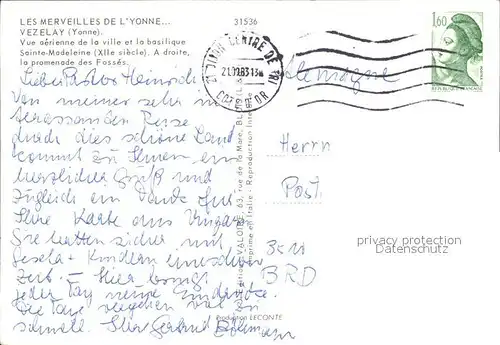 LES MERVEILLES DE L'YONNE...
VEZELAY (Yonne).
Vue aérienne de la ville et la basilique
Sainte-Madeleine (XIIe siècle). A droite,
la promenade des Fossés.
31536
21 DIJON CENTRE DE TRI
COTE D'OR
1,60
REPUBLIQUE FRANÇAISE
Allemagne
Lieber Pastor Heinrich!
Von meiner sehr
Reise
durch dies schöne Land
kommt zu Ihnen ein
herzlicher Gruß und
zugleich ein Dank für
Ihre Karte aus Ungarn
Sie hatten sicher mit
Gisela + Kindern
Zeit. – Hier bringt
jeder Tag neue Eindrücke.
Die Tage vergehen viel zu
schnell. Ihre
Herrn
Pastor
BRD
privacy protection
Datenschutz
63, rue de la Mare,
Imprimé en Italie - Reproduction Interdite
Production LECONTE